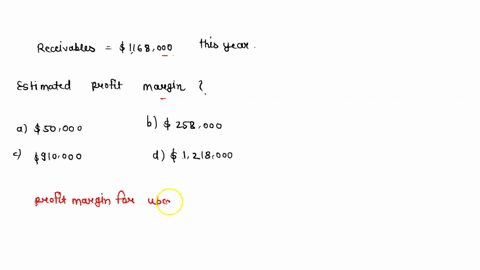 Receivables = $1,168,000 this year.
Estimated profit margin ?
a) $50,000 b) $258,000
c) $910,000 d) $1,218,000
profit margin for upco